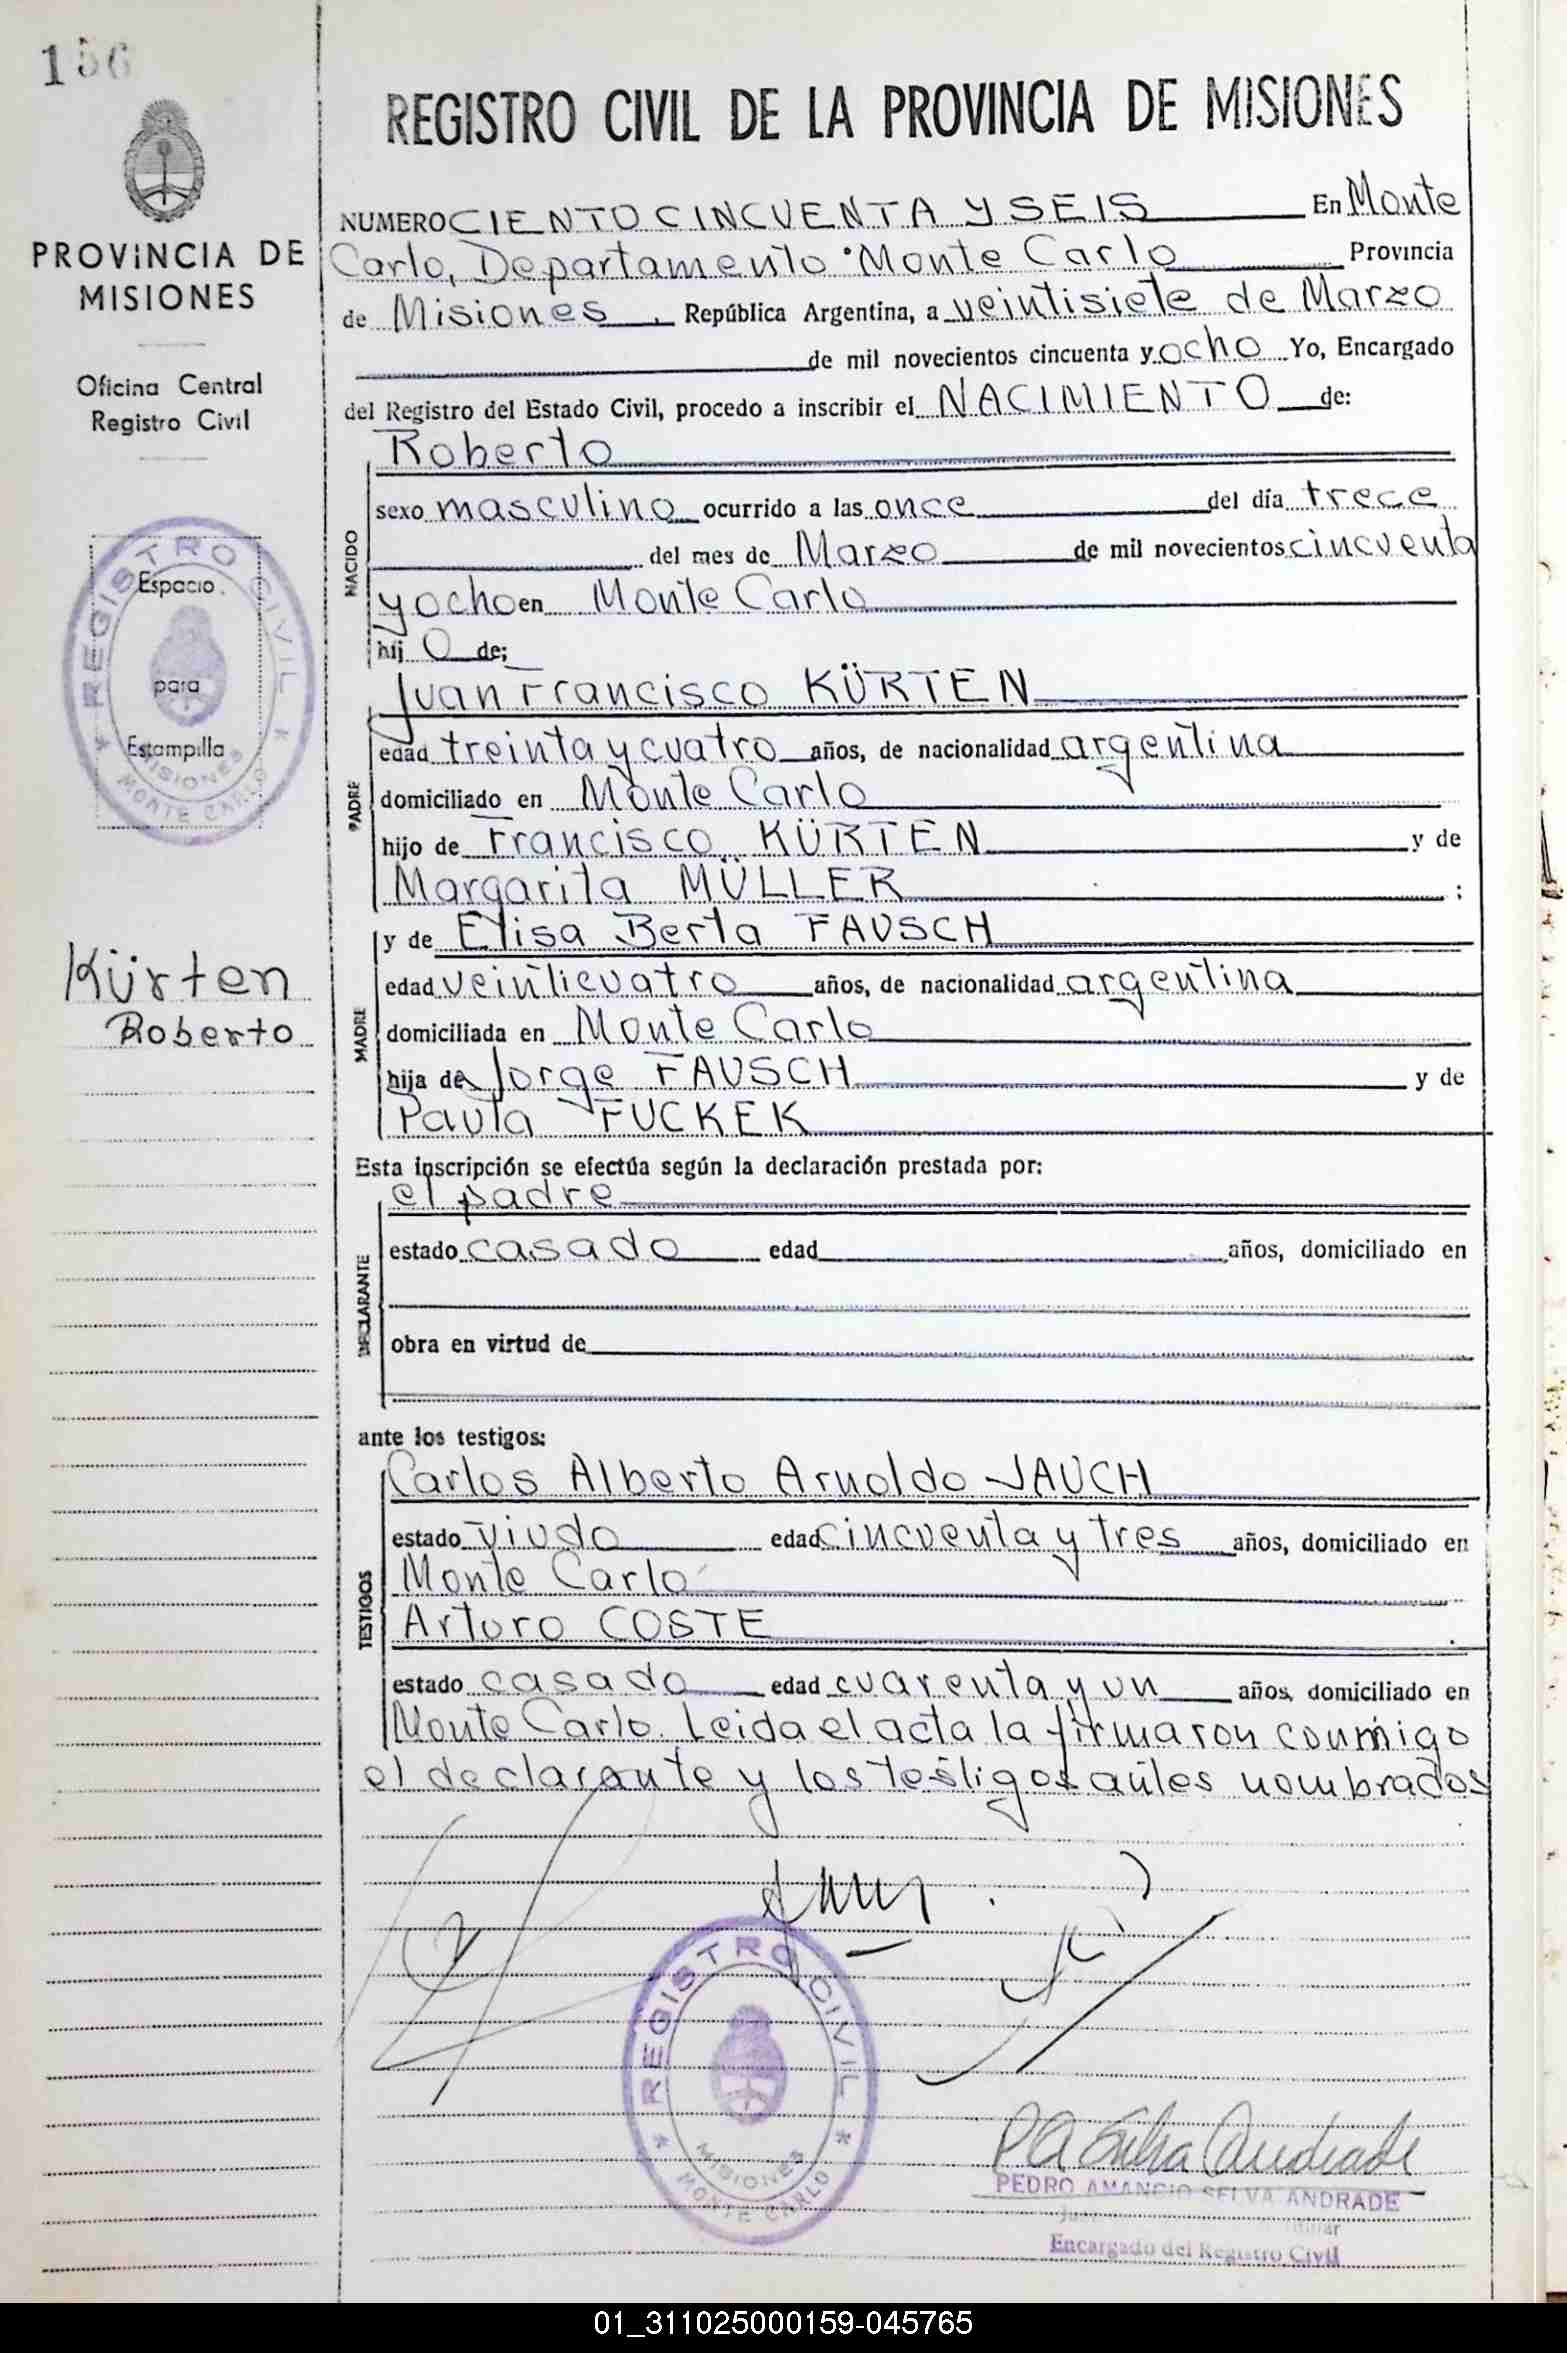 156
REGISTRO CIVIL DE LA PROVINCIA DE MISIONES
PROVINCIA DE
MISIONES
Oficina Central
Registro Civil
REGISTRO CIVIL
Espacio
para
Estampilla
MISIONES
MONTE CARLO
Kürten
Roberto
NUMERO CIENTO CINCUENTA Y SEIS En Monte
Carlo, Departamento Monte Carlo Provincia
de Misiones, República Argentina, a veintisiete de Marzo
de mil novecientos cincuenta y ocho Yo, Encargado
del Registro del Estado Civil, procedo a inscribir el NACIMIENTO de:
NACIDO
Roberto
sexo masculino ocurrido a las once del día trece
del mes de Marzo de mil novecientos cincuenta
y ocho en Monte Carlo
hij o de;
PADRE
Juan Francisco KÜRTEN
edad treinta y cuatro años, de nacionalidad argentina
domiciliado en Monte Carlo
hijo de Francisco KÜRTEN y de
Margarita MÜLLER ;
MADRE
y de Elisa Berta FAUSCH
edad veinticuatro años, de nacionalidad argentina
domiciliada en Monte Carlo
hija de Jorge FAUSCH y de
Paula FUCKEK
Esta inscripción se efectúa según la declaración prestada por:
DECLARANTE
el padre
estado casado edad años, domiciliado en
obra en virtud de
ante los testigos:
TESTIGOS
Carlos Alberto Arnoldo JAUCH
estado viudo edad cincuenta y tres años, domiciliado en
Monte Carlo
Arturo COSTE
estado casado edad cuarenta y un años, domiciliado en
Monte Carlo. Leida el acta la firmaron conmigo
el declarante y los testigos antes nombrados
REGISTRO CIVIL
MISIONES
MONTE CARLO
P A Selva Andrade
PEDRO AMANCIO SELVA ANDRADE
Encargado del Registro Civil
01_311025000159-045765